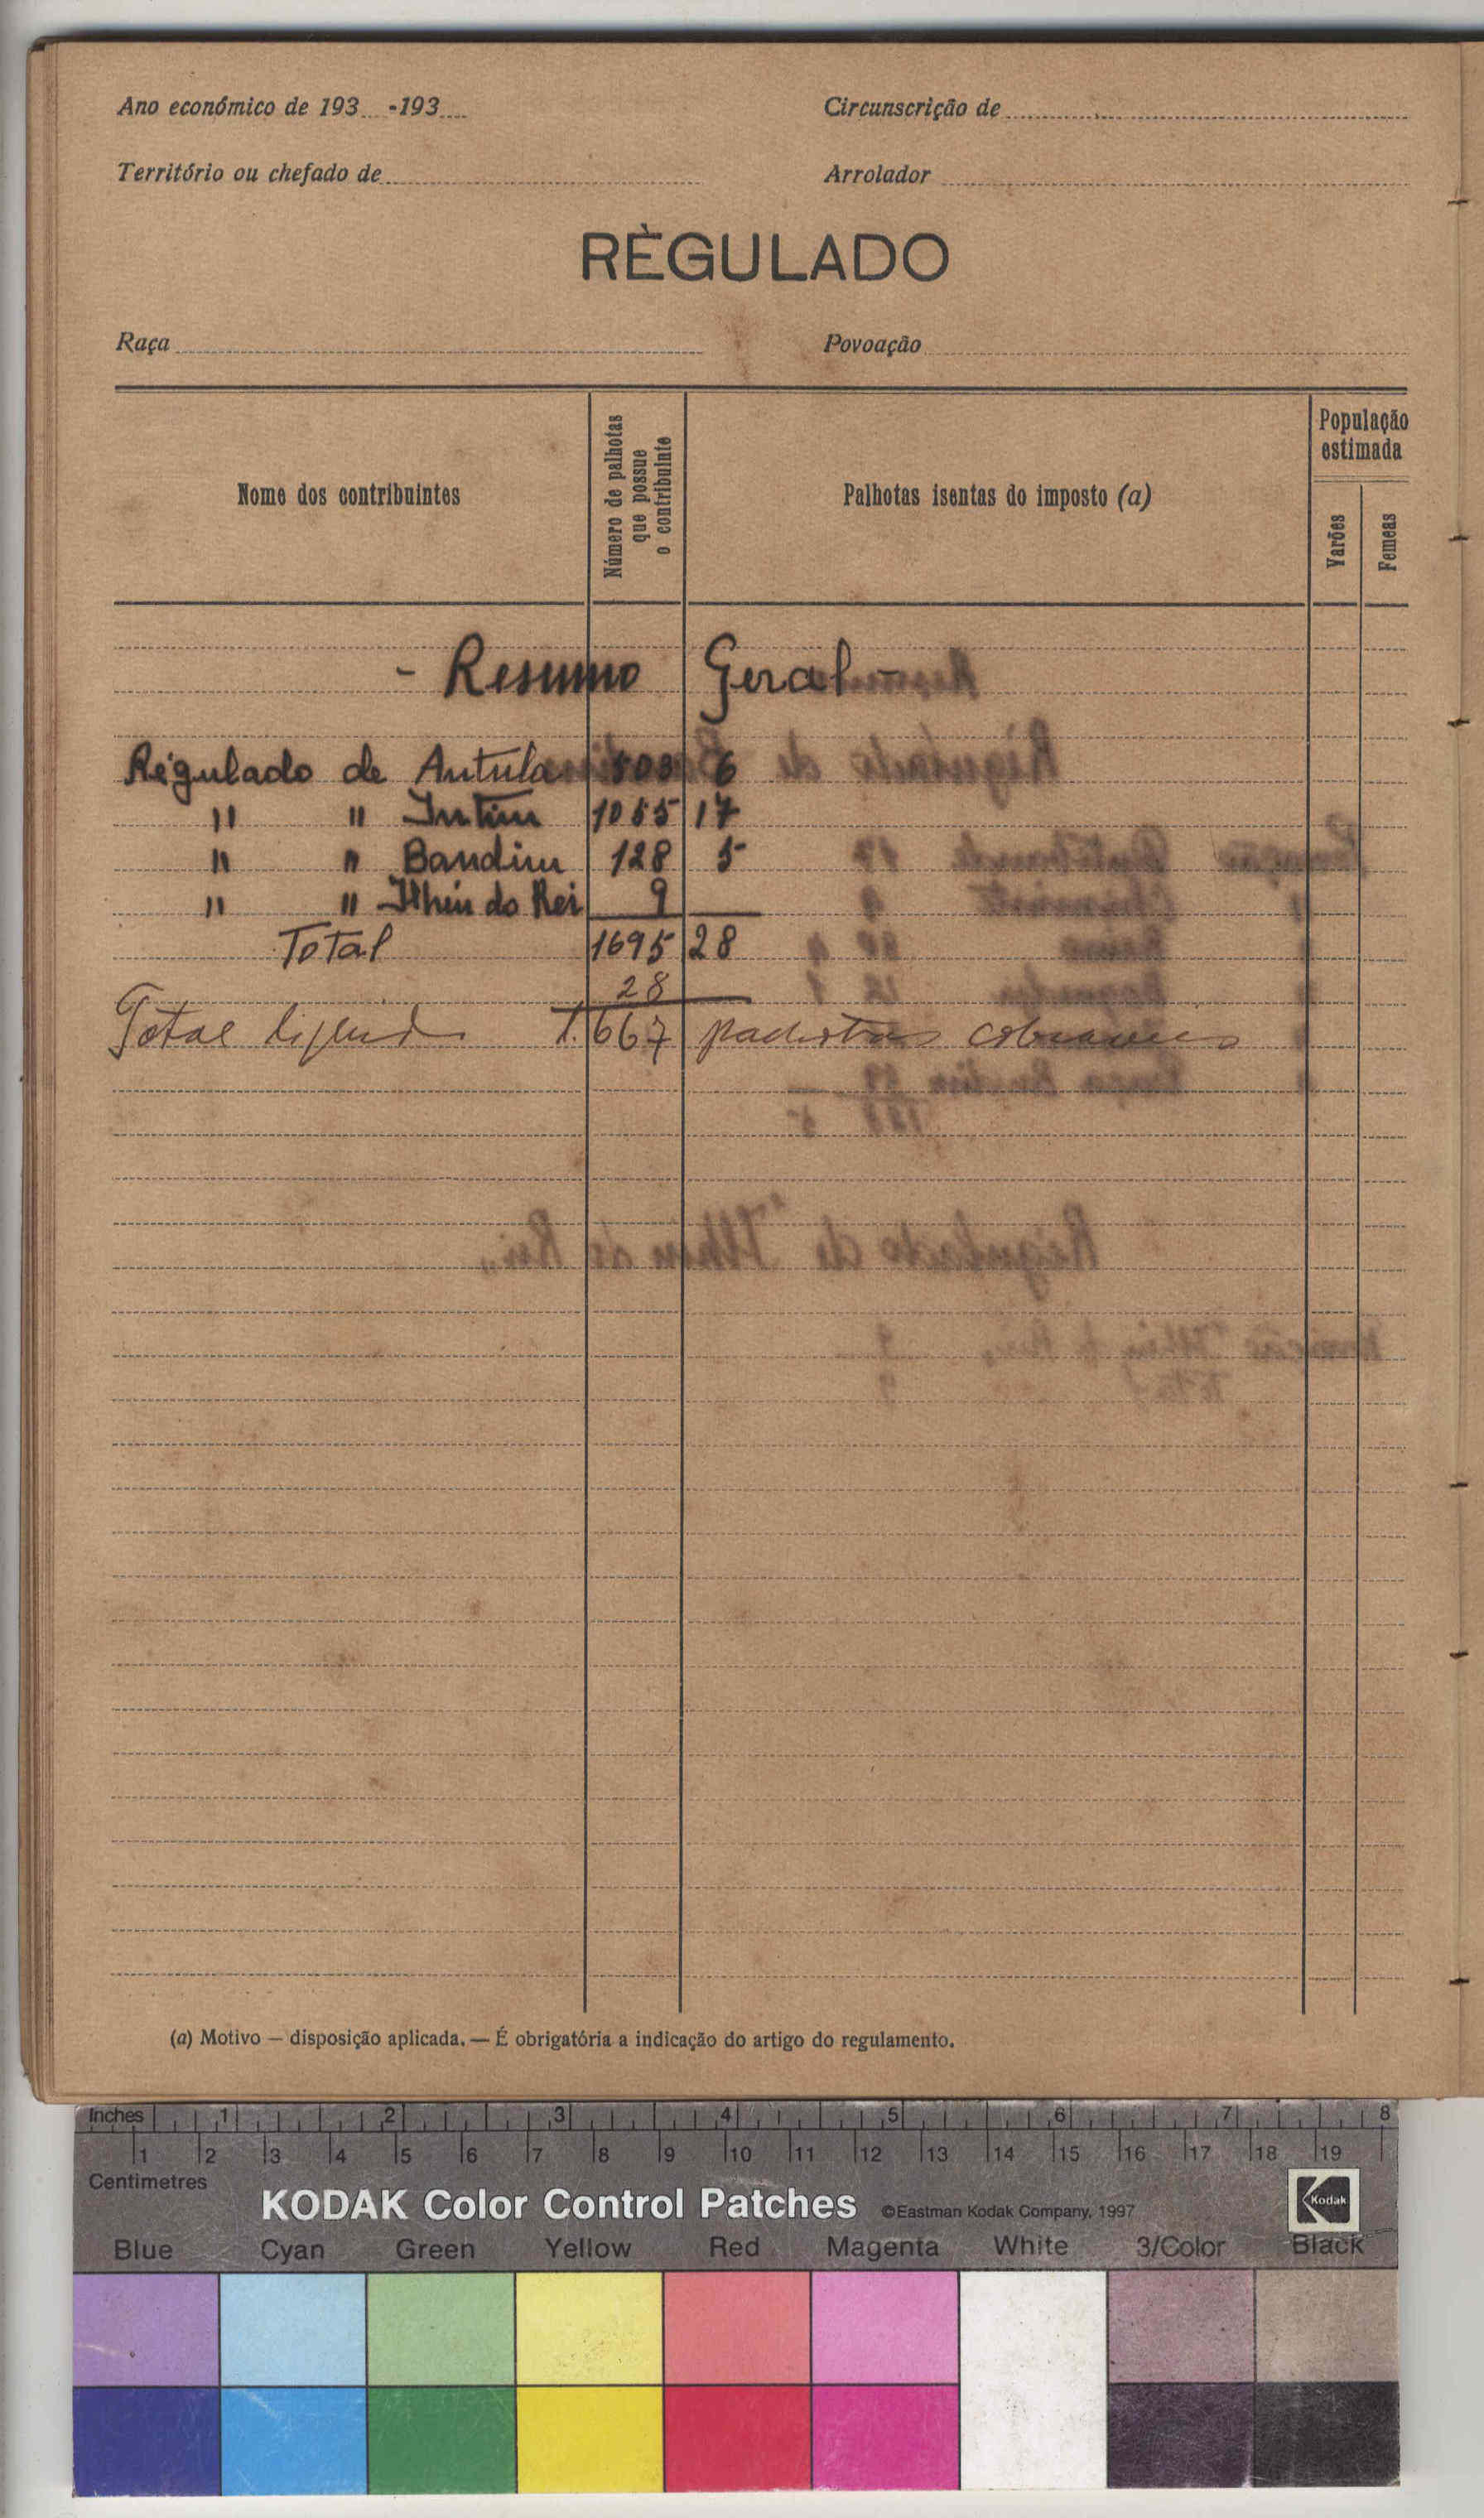 Ano económico de 193... -193....
Circunscrição de
Território ou chefado de
Arrolador
RÈGULADO
Raça
Povoação
Nome dos contribuintes
Número de palhotas que possue o contribuinte
Palhotas isentas do imposto (a)
População estimada
Varões
Femeas
- Resumo Geral -
Régulado de Antula 503 6
" " Intim 1055 17
" " Bandim 128 5
" " Ilheu do Rei 9
Total 1695 28
28
Total 1.667 palhotas cobraveis
(a) Motivo — disposição aplicada. — É obrigatória a indicação do artigo do regulamento.
Inches 1 2 3 4 5 6 7 8
1 2 3 4 5 6 7 8 9 10 11 12 13 14 15 16 17 18 19
Centimetres
KODAK Color Control Patches ©Eastman Kodak Company, 1997 Kodak
Blue Cyan Green Yellow Red Magenta White 3/Color Black